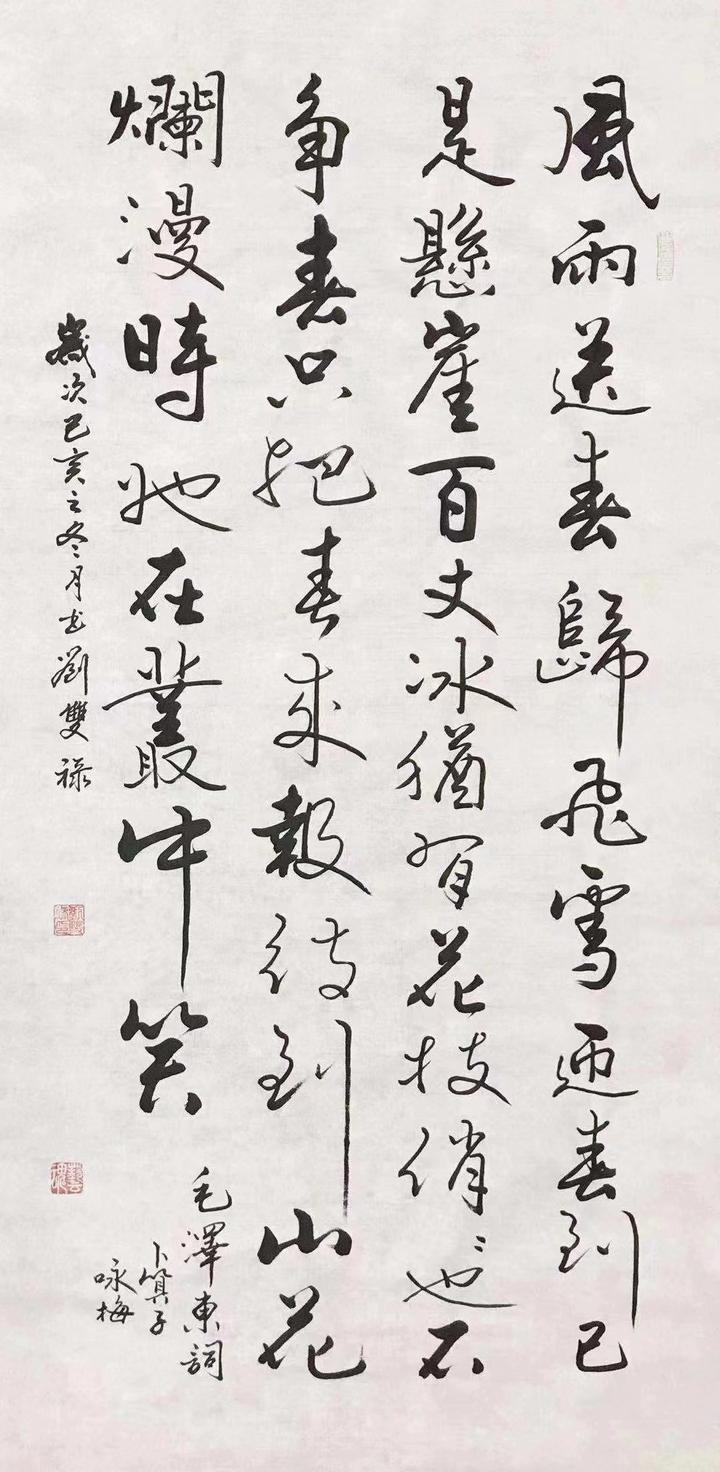 風雨送春歸飛雪迎春到已
是懸崖百丈冰猶有花枝俏〻也不
争春只把春來報待到山花
爛漫時她在叢中笑
毛澤東詞
卜算子
咏梅
歲次己亥之冬月书劉雙禄